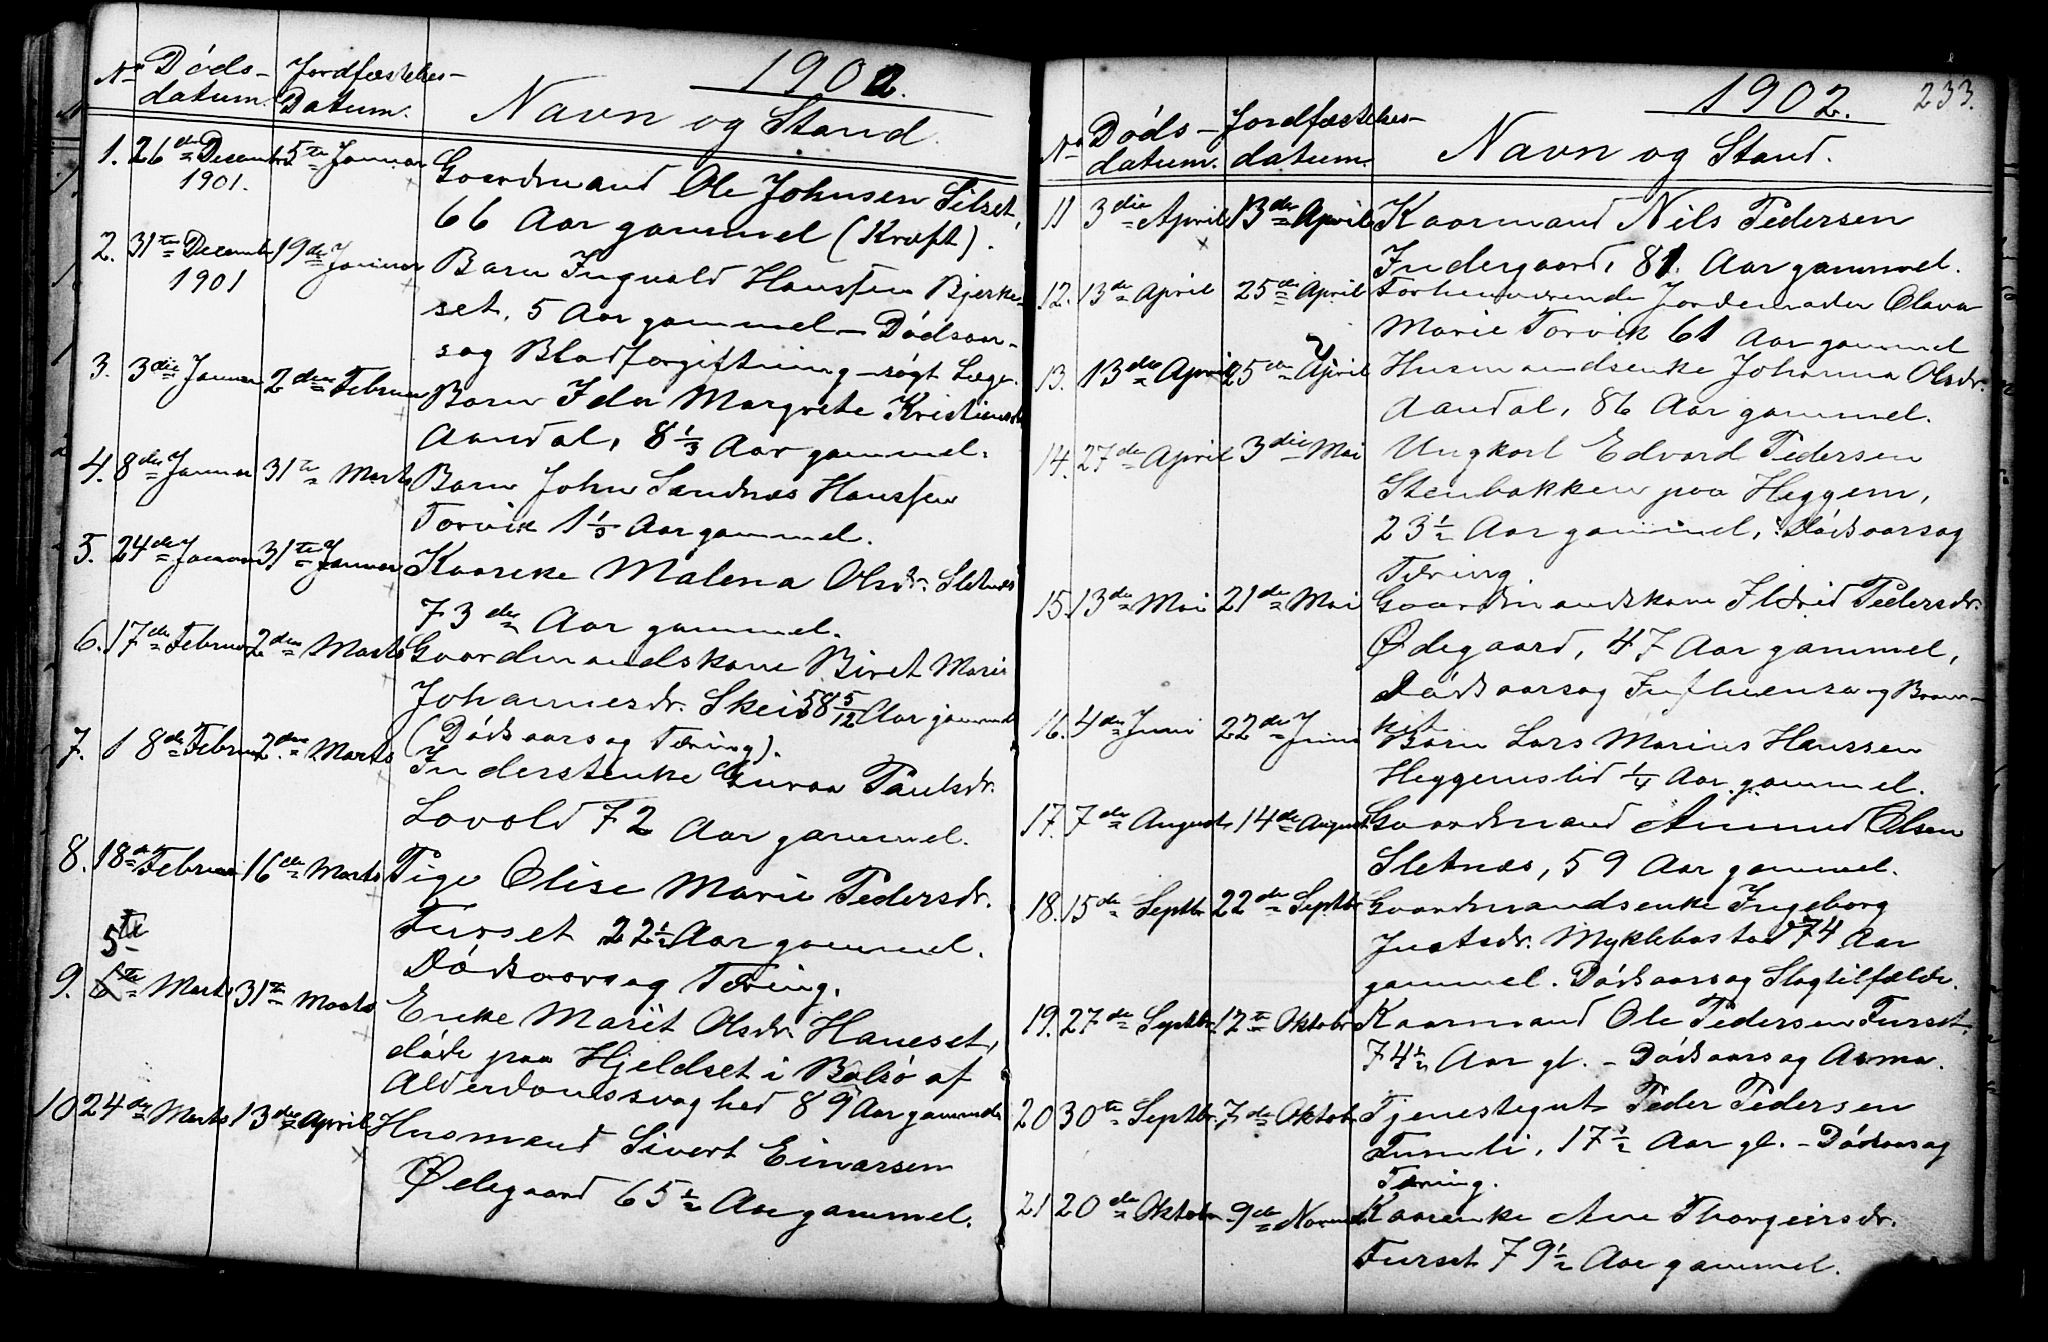 1902.
No Døds- Jordfæstelses-
datum. Datum. Navn og Stand.
1. 26de Decembr 5te Januar Gaardmand Ole Johnsen Silset,
1901. 66 Aar gammel (Kræft).
2. 31te Decembr 19de Januar Barn Ingvald Hanssen Bjerke-
1901 set, 5 Aar gammel – Dødsaar-
sag Blodforgiftning – søgt Læge.
3. 3die Januar 2den Februar Barn Ida Margrete Kristiansdr.
Aandal, 8 1/3 Aar gammel.
4. 8de Januar 31te Marts Barn John Sandnæs Hanssen
Torvik 1 1/3 Aar gammel.
5. 24de Januar 31te Januar Kaareke Malena Olsdr. Sletnæs
73de Aar gammel.
6. 17de Februar 2den Marts Gaardmandskone Biret Marie
Johannesdr. Skei 58 5/12 Aar gammel
(Dødsaarsag Tæring).
7. 18de Februar 2den Marts Inderstenke Guroa Paulsdr.
Lovold 72 Aar gammel.
8. 18de Februar 16de Marts Pige Olise Marie Pedersdr.
Furset 22½ Aar gammel.
Dødsaarsag Tæring.
5te
9. 6te Marts 31te Marts Enke Marit Olsdr. Haneset,
døde paa Hjeldset i Bolsø af
Alderdomssvaghed 89 Aar gammel
10 24de Marts 13de April Husmand Sivert Einarsen
Ødegaard 65½ Aar gammel.
1902. 233.
No Døds- Jordfæstelses-
datum. datum. Navn og Stand.
11 3die April 13de April Kaarmand Nils Pedersen
Indergaard, 81 Aar gammel.
12. 13de April 25de April Forhenværende Jordemoder Olava
Marie Torvik 61 Aar gammel
13. 13de April 25de April Husmandsenke Johanna Olsdr.
Aandal, 86 Aar gammel.
14. 27de April 3die Mai Ungkarl Edvard Pedersen
Stenbakken paa Heggem,
23½ Aar gammel, Dødsaarsag
Tæring.
15. 13de Mai 21de Mai Gaardmandskone Ildrid Pedersdr.
Ødegaard, 47 Aar gammel,
Dødsaarsag Influensa og Bron-
kit
16. 4de Juni 22de Juni Barn Lars Marius Hanssen
Heggemslid ¼ Aar gammel.
17. 7de August 14de August Gaardmand Amund Olsen
Sletnæs, 59 Aar gammel.
18. 15de Septbr 22de Septbr Gaardmandsenke Ingeborg
Justsdr. Myklebostad 74 Aar
gammel. Dødsaarsag Slagtilfælde.
19. 27de Septbr. 12te Oktobr Kaarmand Ole Pedersen Furset
74½ Aar gl. – Dødsaarsag Asma.
20 30te Septbr. 7de Oktobr Tjenestegut Peder Pedersen
17½ Aar gl. – Dødsaarsag
Tæring.
21 20de Oktobr 9de Novem Kaarenke Ane Thorgeirsdr.
Furset 79½ Aar gammel.